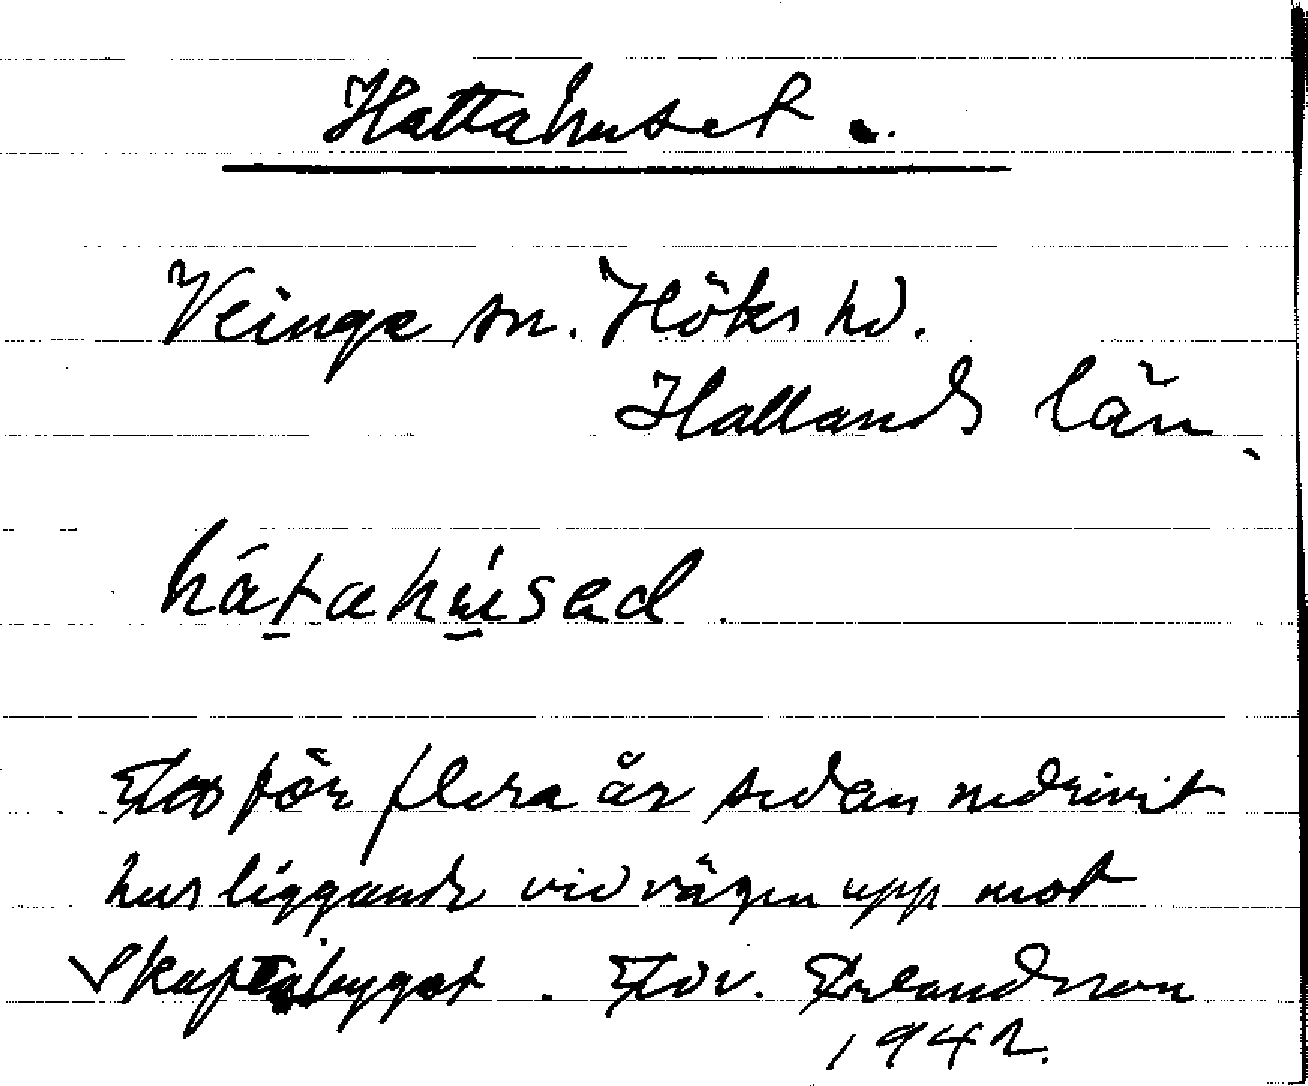 Hattahuset.
Veinge sn. Höks hd.
Hallands län.
hátahúsad
Ett för flera år sedan nedrivit
hus liggande vid vägen upp mot
Edv. Erlandsson
1942.